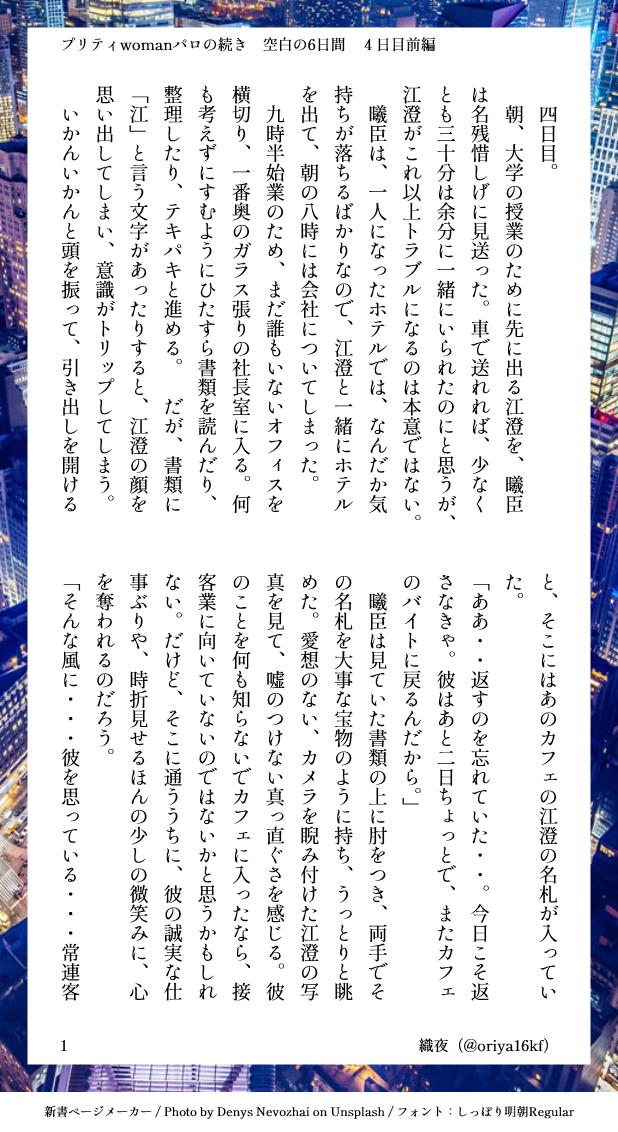 プリティwomanパロの続き　空白の6日間　４日目前編
四日目。
朝、大学の授業のために先に出る江澄を、曦臣
は名残惜しげに見送った。車で送れれば、少なく
とも三十分は余分に一緒にいられたのにと思うが、
江澄がこれ以上トラブルになるのは本意ではない。
曦臣は、一人になったホテルでは、なんだか気
持ちが落ちるばかりなので、江澄と一緒にホテル
を出て、朝の八時には会社についてしまった。
九時半始業のため、まだ誰もいないオフィスを
横切り、一番奥のガラス張りの社長室に入る。何
も考えずにすむようにひたすら書類を読んだり、
整理したり、テキパキと進める。　だが、書類に
「江」と言う文字があったりすると、江澄の顔を
思い出してしまい、意識がトリップしてしまう。
いかんいかんと頭を振って、引き出しを開ける
と、そこにはあのカフェの江澄の名札が入ってい
た。
「ああ・・返すのを忘れていた・・。今日こそ返
さなきゃ。彼はあと二日ちょっとで、またカフェ
のバイトに戻るんだから。」
曦臣は見ていた書類の上に肘をつき、両手でそ
の名札を大事な宝物のように持ち、うっとりと眺
めた。愛想のない、カメラを睨み付けた江澄の写
真を見て、嘘のつけない真っ直ぐさを感じる。彼
のことを何も知らないでカフェに入ったなら、接
客業に向いていないのではないかと思うかもしれ
ない。だけど、そこに通ううちに、彼の誠実な仕
事ぶりや、時折見せるほんの少しの微笑みに、心
を奪われるのだろう。
「そんな風に・・・彼を思っている・・・常連客
1
織夜（@oriya16kf）
新書ページメーカー / Photo by Denys Nevozhai on Unsplash / フォント：しっぽり明朝Regular